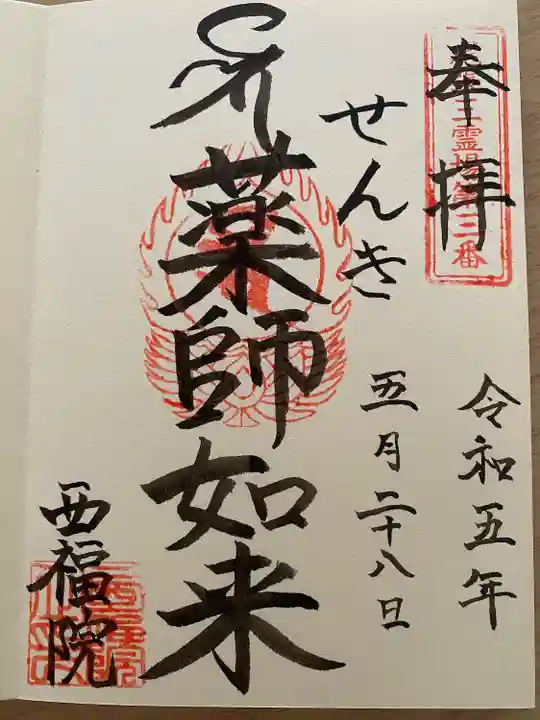 奉拝
三霊場第三番
令和五年
五月二十八日
せんき
薬師如来
西福院